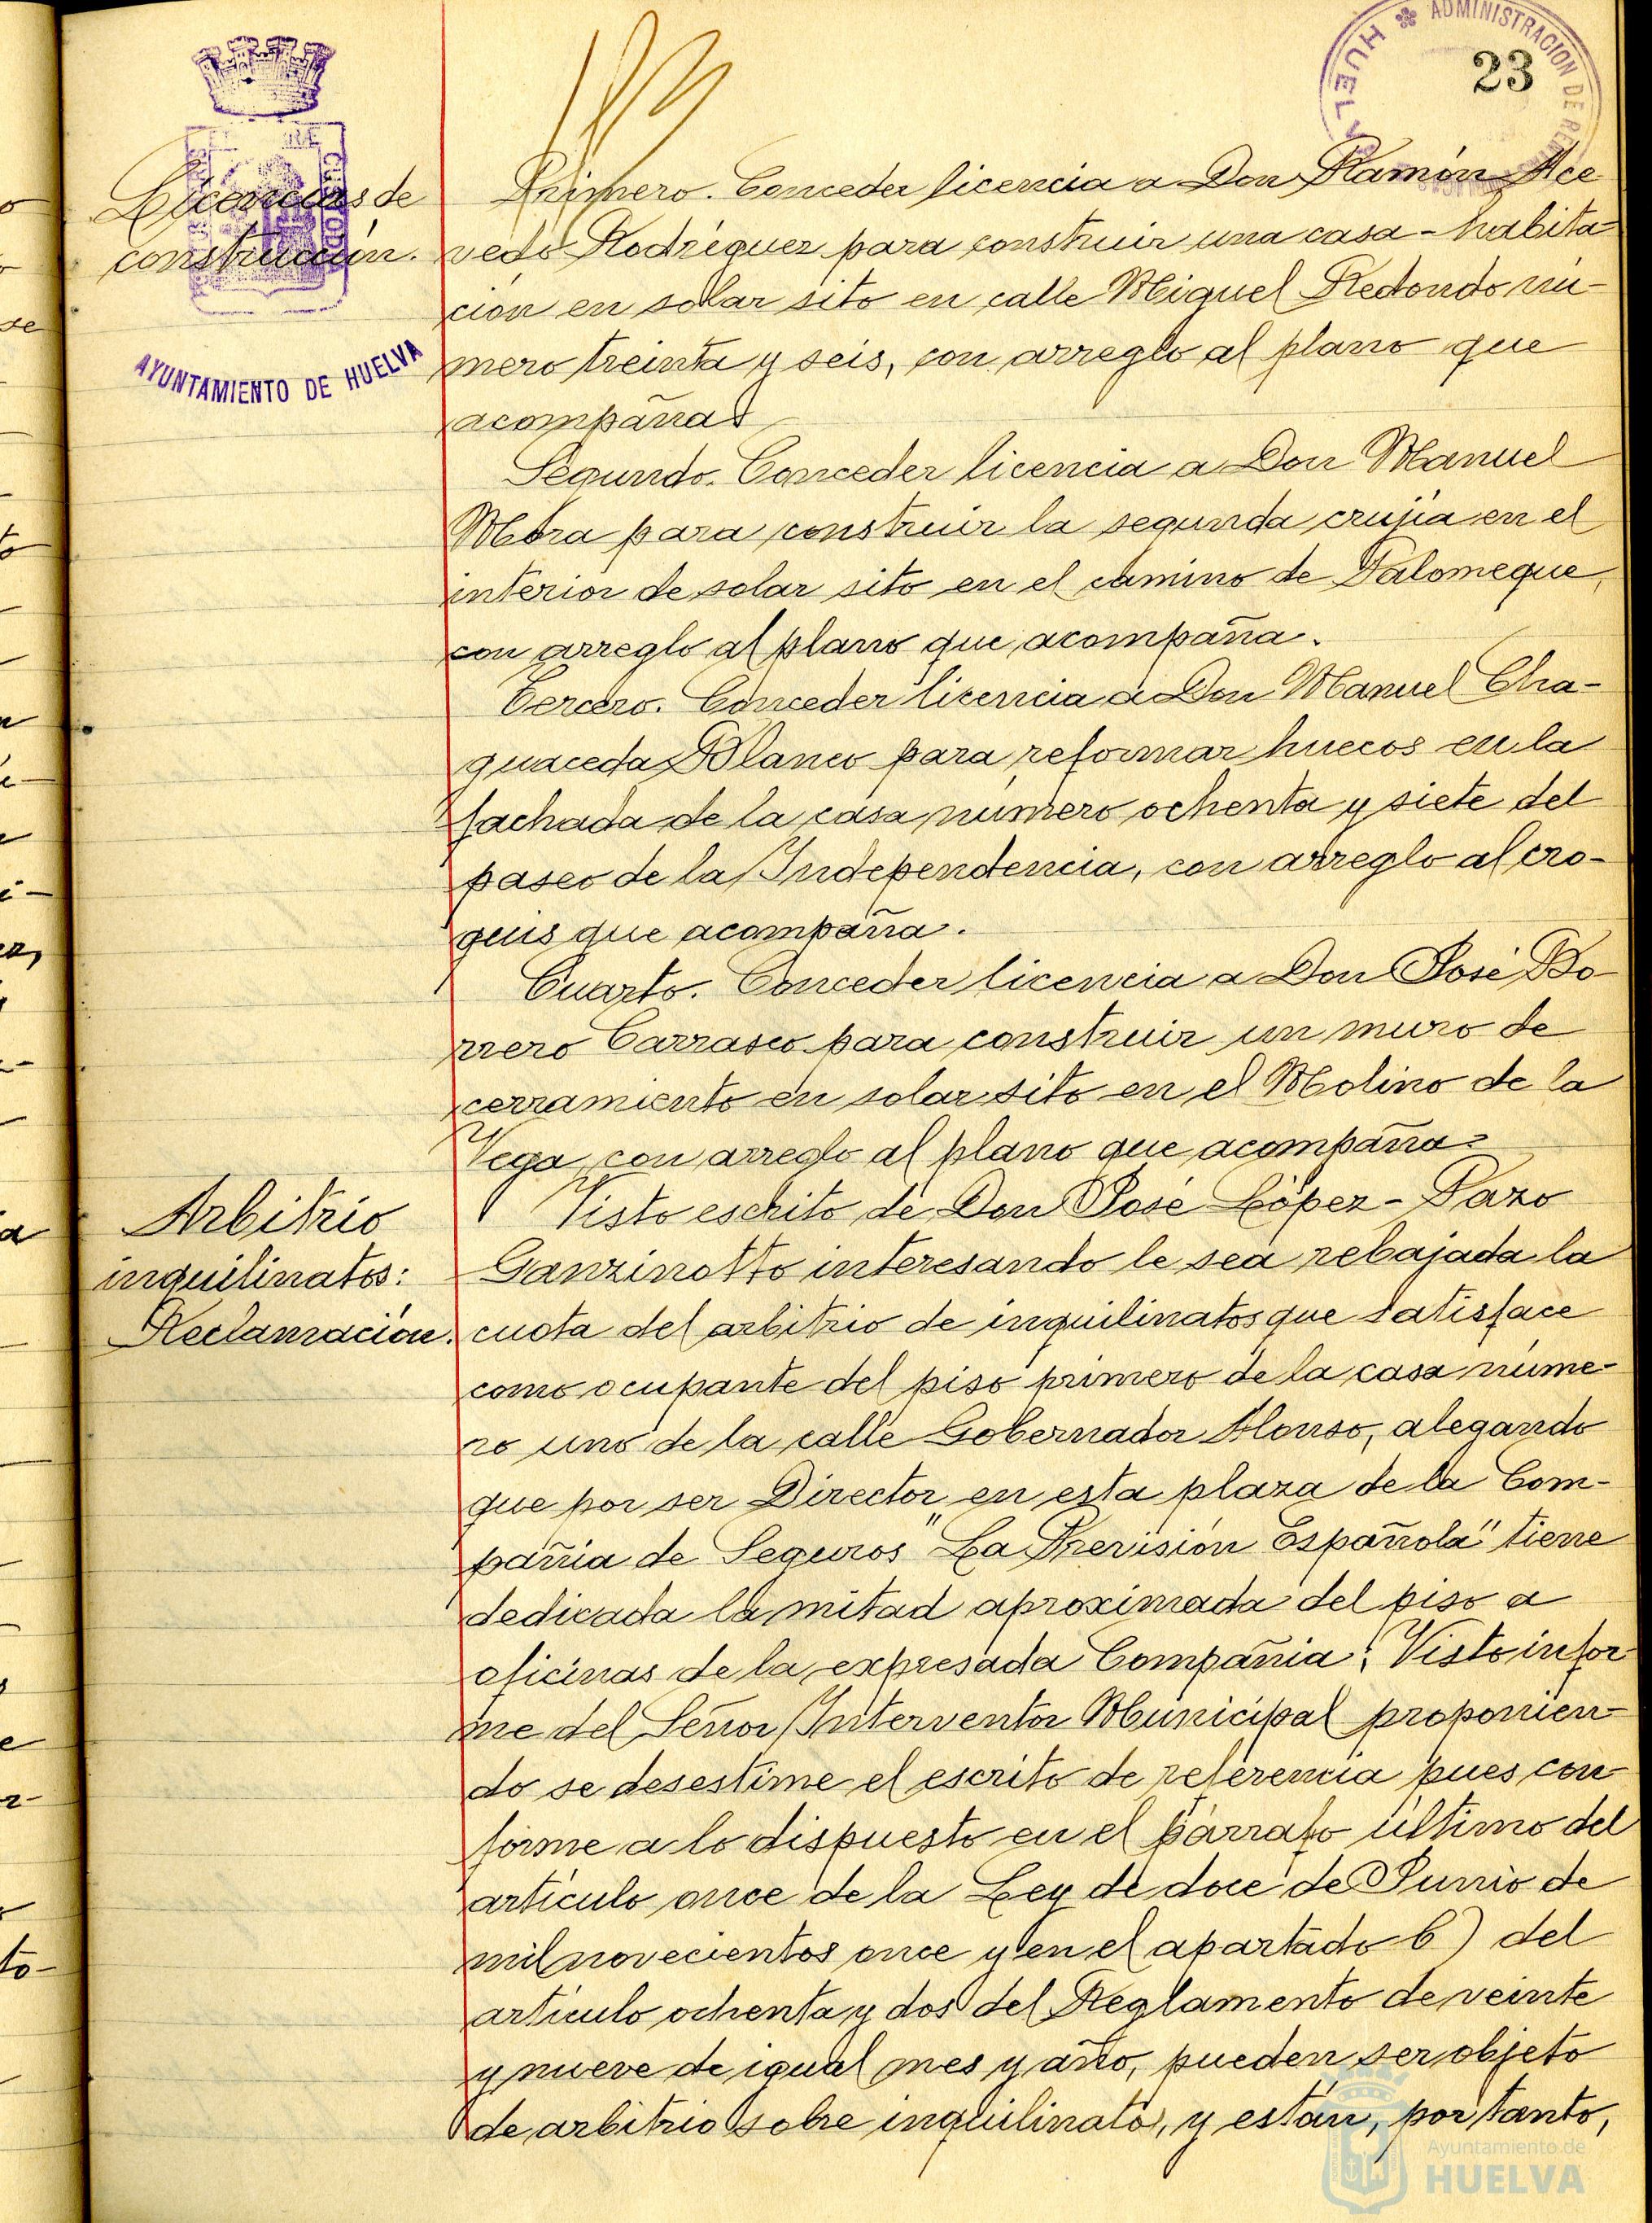 ADMINISTRACION DE
HUELVA
23
Licencias de
construcción.
AYUNTAMIENTO DE HUELVA
Primero. Conceder licencia a Don Ramón Ace
vedo Rodríguez para construir una casa-habita
ción en solar sito en calle Miguel Redondo nú-
mero treinta y seis, con arreglo al plano que
acompaña.
Segundo. Conceder licencia a Don Manuel
Mora para construir la segunda crujia en el
interior de solar sito en el camino de Palomeque,
con arreglo al plano que acompaña.
Tercero. Conceder licencia a Don Manuel Cha-
guaceda Blanco para reformar huecos en la
fachada de la casa número ochenta y siete del
paseo de la Independencia, con arreglo al cro-
quis que acompaña.
Cuarto. Conceder licencia a Don José Bo-
rrero Carrasco para construir un muro de
cerramiento en solar sito en el Molino de la
Vega, con arreglo al plano que acompaña.
Arbitrio
inquilinatos:
Reclamación.
Visto escrito de Don José López-Pazo
Ganzinotto interesando le sea rebajada la
cuota del arbitrio de inquilinatos que satisface
como ocupante del piso primero de la casa núme-
ro uno de la calle Gobernador Alonso, alegando
que por ser Director en esta plaza de la Com-
pañia de Seguros "La Previsión Española" tiene
dedicada la mitad aproximada del piso a
oficinas de la expresada Compañia; Visto infor
me del Señor Interventor Municipal proponien-
do se desestime el escrito de referencia pues con
forme a lo dispuesto en el párrafo último del
artículo once de la Ley de doce de Junio de
mil novecientos once y en el apartado b) del
artículo ochenta y dos del Reglamento de veinte
y nueve de igual mes y año, pueden ser objeto
de arbitrio sobre inquilinato, y están, por tanto,
Ayuntamiento de
HUELVA